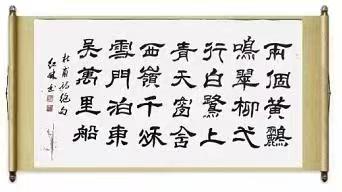 兩個黃鸝
鳴翠柳弌
行白鷺上
青天窗含
西嶺千秌
雪門泊東
吳萬里船
杜甫詩絕句